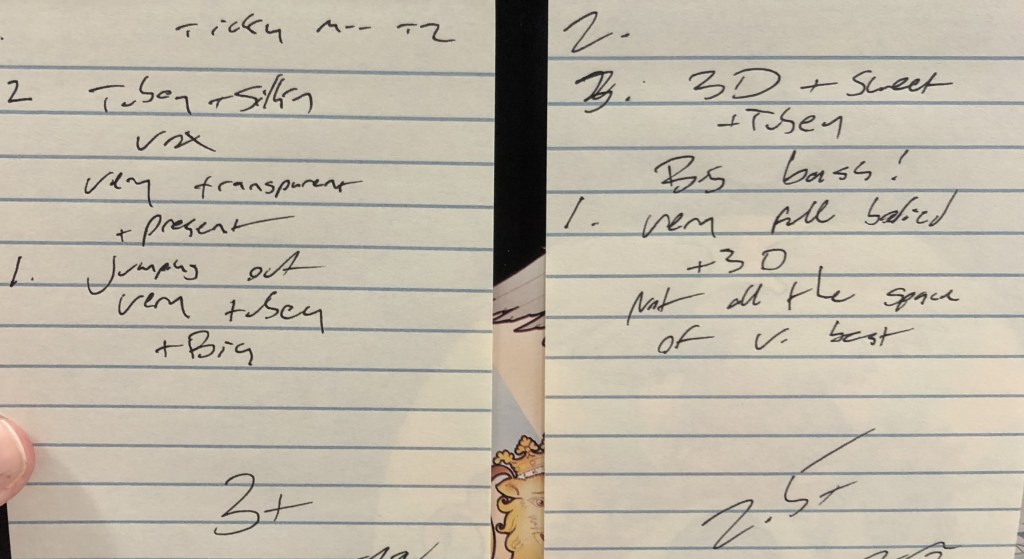 Ticky T2
2 Tubey + Silky
vox
very transparent
+ present
1. Jumping out
very tubey
+ Big
3+
2.
3. 3D + Sweet
+ Tubey
Big bass!
1. very full bodied
+ 3D
Not all the space
of v. best
2.5+